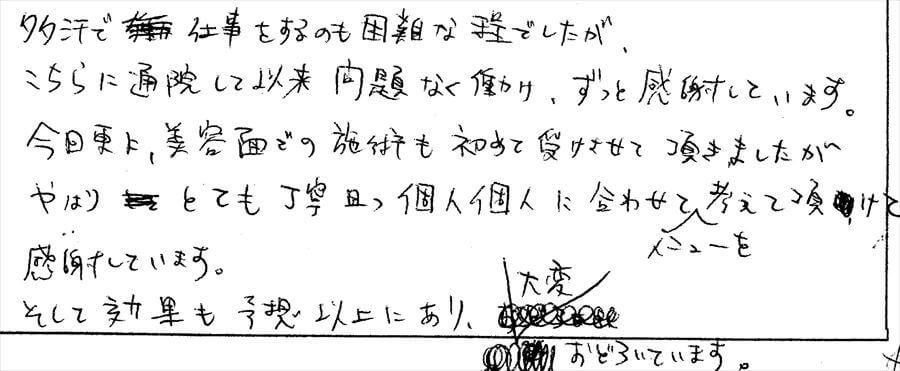 多汗で仕事をするのも困難な程でしたが、
こちらに通院して以来 問題なく働け、ずっと感謝しています。
今日更に、美容面での施術も初めて受けさせて頂きましたが
やはり とても丁寧且つ個人個人に合わせてメニューを考えて頂けて
感謝しています。
そして効果も予想以上にあり、大変
おどろいています。